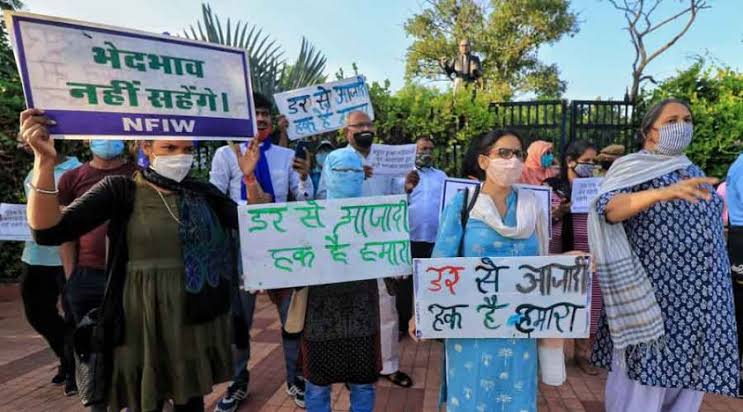 भेदभाव
नहीं सहेंगे।
NFIW
डर से आजादी
हक है हमारा
डर से आजादी
हक है हमारा
डर से आजादी
हक है हमारा